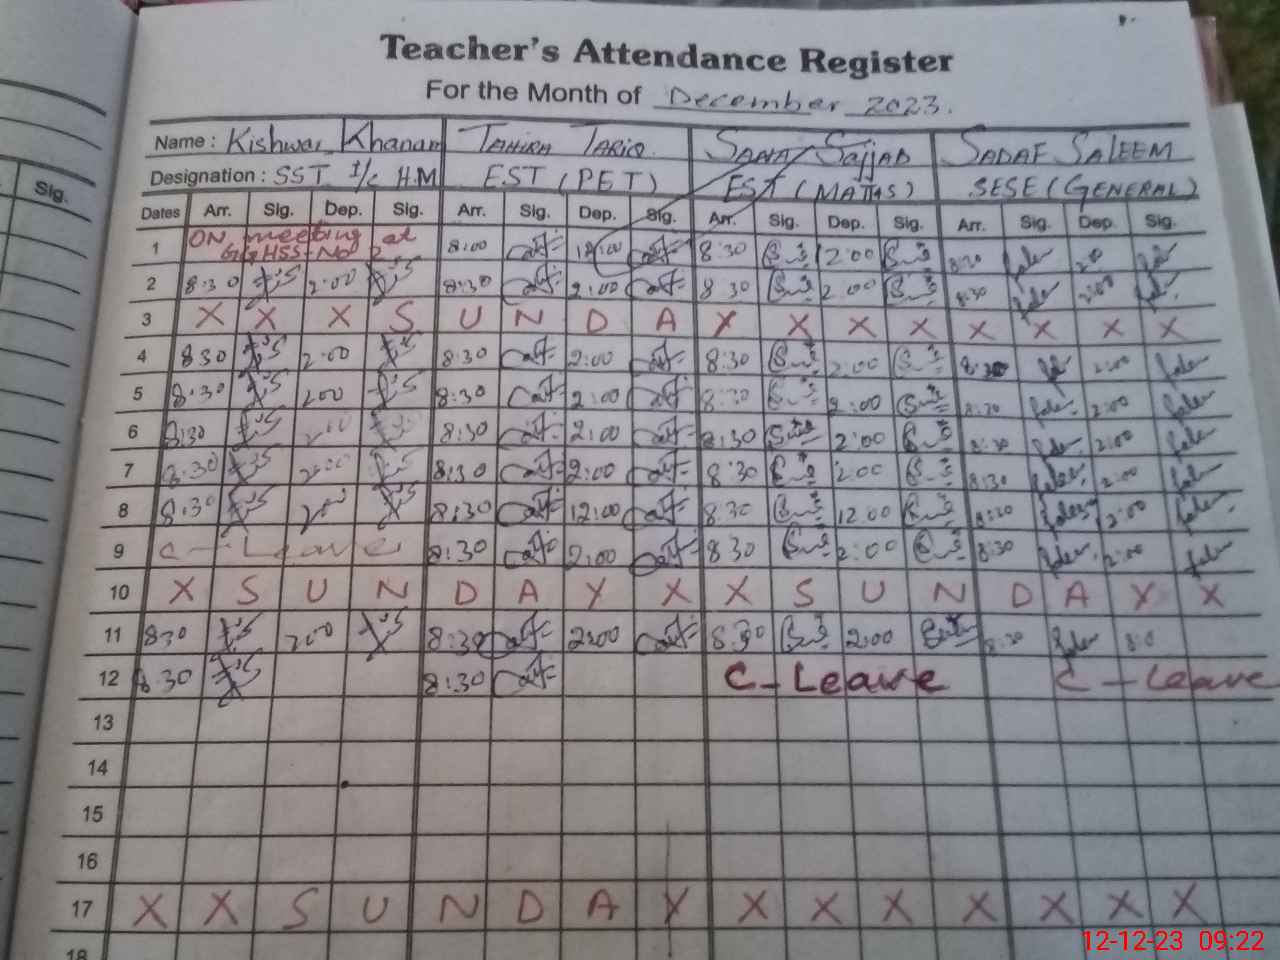 Teacher's Attendance Register
For the Month of December 2023.
Name: Kishwar Khanam TAHIRA TARIQ SANA Sajjad SADAF SALEEM
Designation: SST I/c H.M EST (PET) EST (MATHS) SESE (GENERAL)
Sig.
Dates Arr. Sig. Dep. Sig. Arr. Sig. Dep. Sig. Arr. Sig. Dep. Sig. Arr. Sig. Dep. Sig.
ON meeting at
1 GGHSS No 2 8:00 8:30 2:00 8:30 2:00
2 8:30 2:00 8:30 2:00 8:30 2:00 8:30 2:00
3 X X X S U N D A Y X X X X X X X
4 8:30 2:00 8:30 2:00 8:30 2:00 8:30 2:00
5 8:30 200 8:30 2:00 8:30 2:00 8:30 2:00
6 8:30 200 8:30 2:00 8:30 2:00 8:30 2:00
7 8:30 2:00 8:30 2:00 8:30 2:00 8:30 2:00
8 8:30 200 8:30 12:00 8:30 12:00 8:30 12:00
9 C - Leave 8:30 2:00 8:30 2:00 8:30 2:00
10 X S U N D A Y X X S U N D A Y X
11 830 200 8:30 2:00 8:30 2:00 8:30
12 8:30 8:30 C - Leave C - Leave
13
14
15
16
17 X X S U N D A Y X X X X X X X
18
12-12-23 09:22